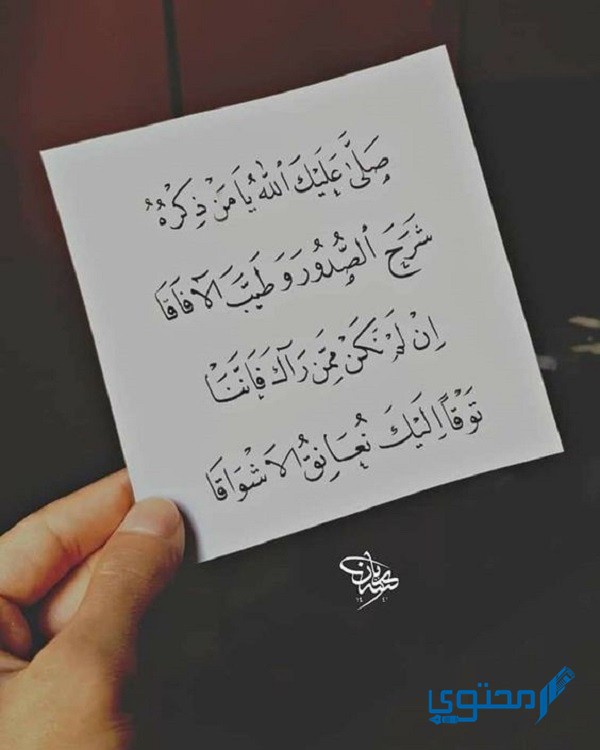 صَلَّىٰ عَلَيْكَ ٱللَّهُ يَا مَنْ ذِكْرُهُ
شَرَحَ ٱلصُّدُورَ وَ طَيَّبَ الآفَاقَا
اِنْ لَمْ نَكُنْ مِمَّنْ رَآكَ فَاِنَّنَا
تَوْقًا اِلَيْكَ نُعَانِقُ الاَشْوَاقَا
محتوى